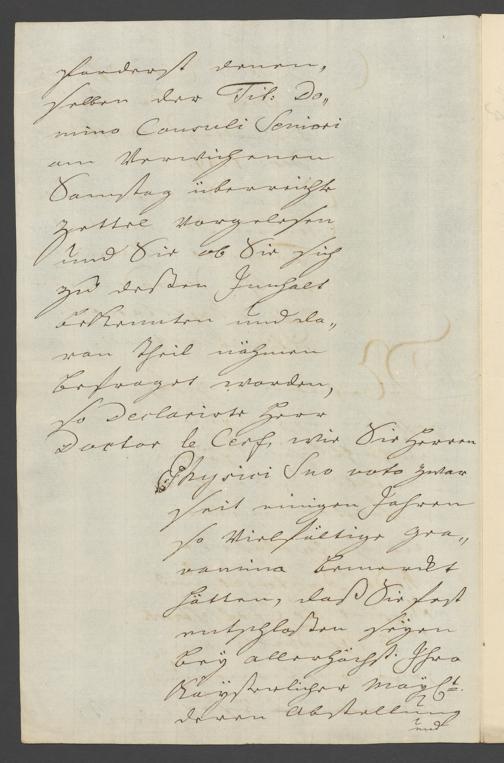 forderst denen„
selben der Tit: Do„
mino Consuli Seniori
am Verwichenen
Samstag überreichte
Zettel Vorgelesen
und Sie ob Sie sich
zu deßen Innhalt
bekennten und da„
ran theil nähmen
befraget worden,
so Declarirte Herr
Doctor le Cerf, wie Sie Herren
Physici Suo voto zwar
seit einigen Jahren
so Vielfältige gra„
vamina bemerckt
hätten, daß Sie fest
entschloßen seyen
bey allerhöchst Ihro
Kayserlicher Mayt.
deren Abstellung
und